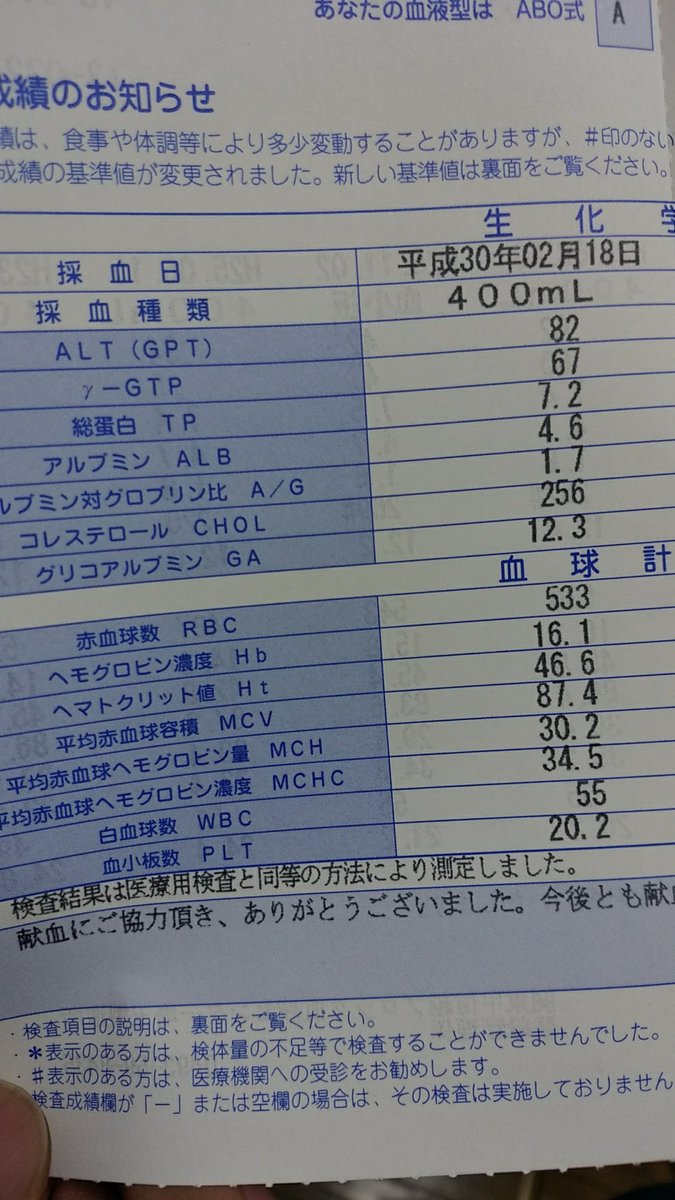 あなたの血液型は ABO式 A
成績のお知らせ
績は、食事や体調等により多少変動することがありますが、#印のない
成績の基準値が変更されました。新しい基準値は裏面をご覧ください。
生 化 学
採血日 平成30年02月18日
採血種類 400mL
ALT(GPT) 82
γ-GTP 67
総蛋白 TP 7.2
アルブミン ALB 4.6
ルブミン対グロブリン比 A/G 1.7
コレステロール CHOL 256
グリコアルブミン GA 12.3
血 球 計
赤血球数 RBC 533
ヘモグロビン濃度 Hb 16.1
ヘマトクリット値 Ht 46.6
平均赤血球容積 MCV 87.4
平均赤血球ヘモグロビン量 MCH 30.2
平均赤血球ヘモグロビン濃度 MCHC 34.5
白血球数 WBC 55
血小板数 PLT 20.2
検査結果は医療用検査と同等の方法により測定しました。
献血にご協力頂き、ありがとうございました。今後とも献血
・検査項目の説明は、裏面をご覧ください。
・*表示のある方は、検体量の不足等で検査することができませんでした。
・#表示のある方は、医療機関への受診をお勧めします。
検査成績欄が「-」または空欄の場合は、その検査は実施しておりません